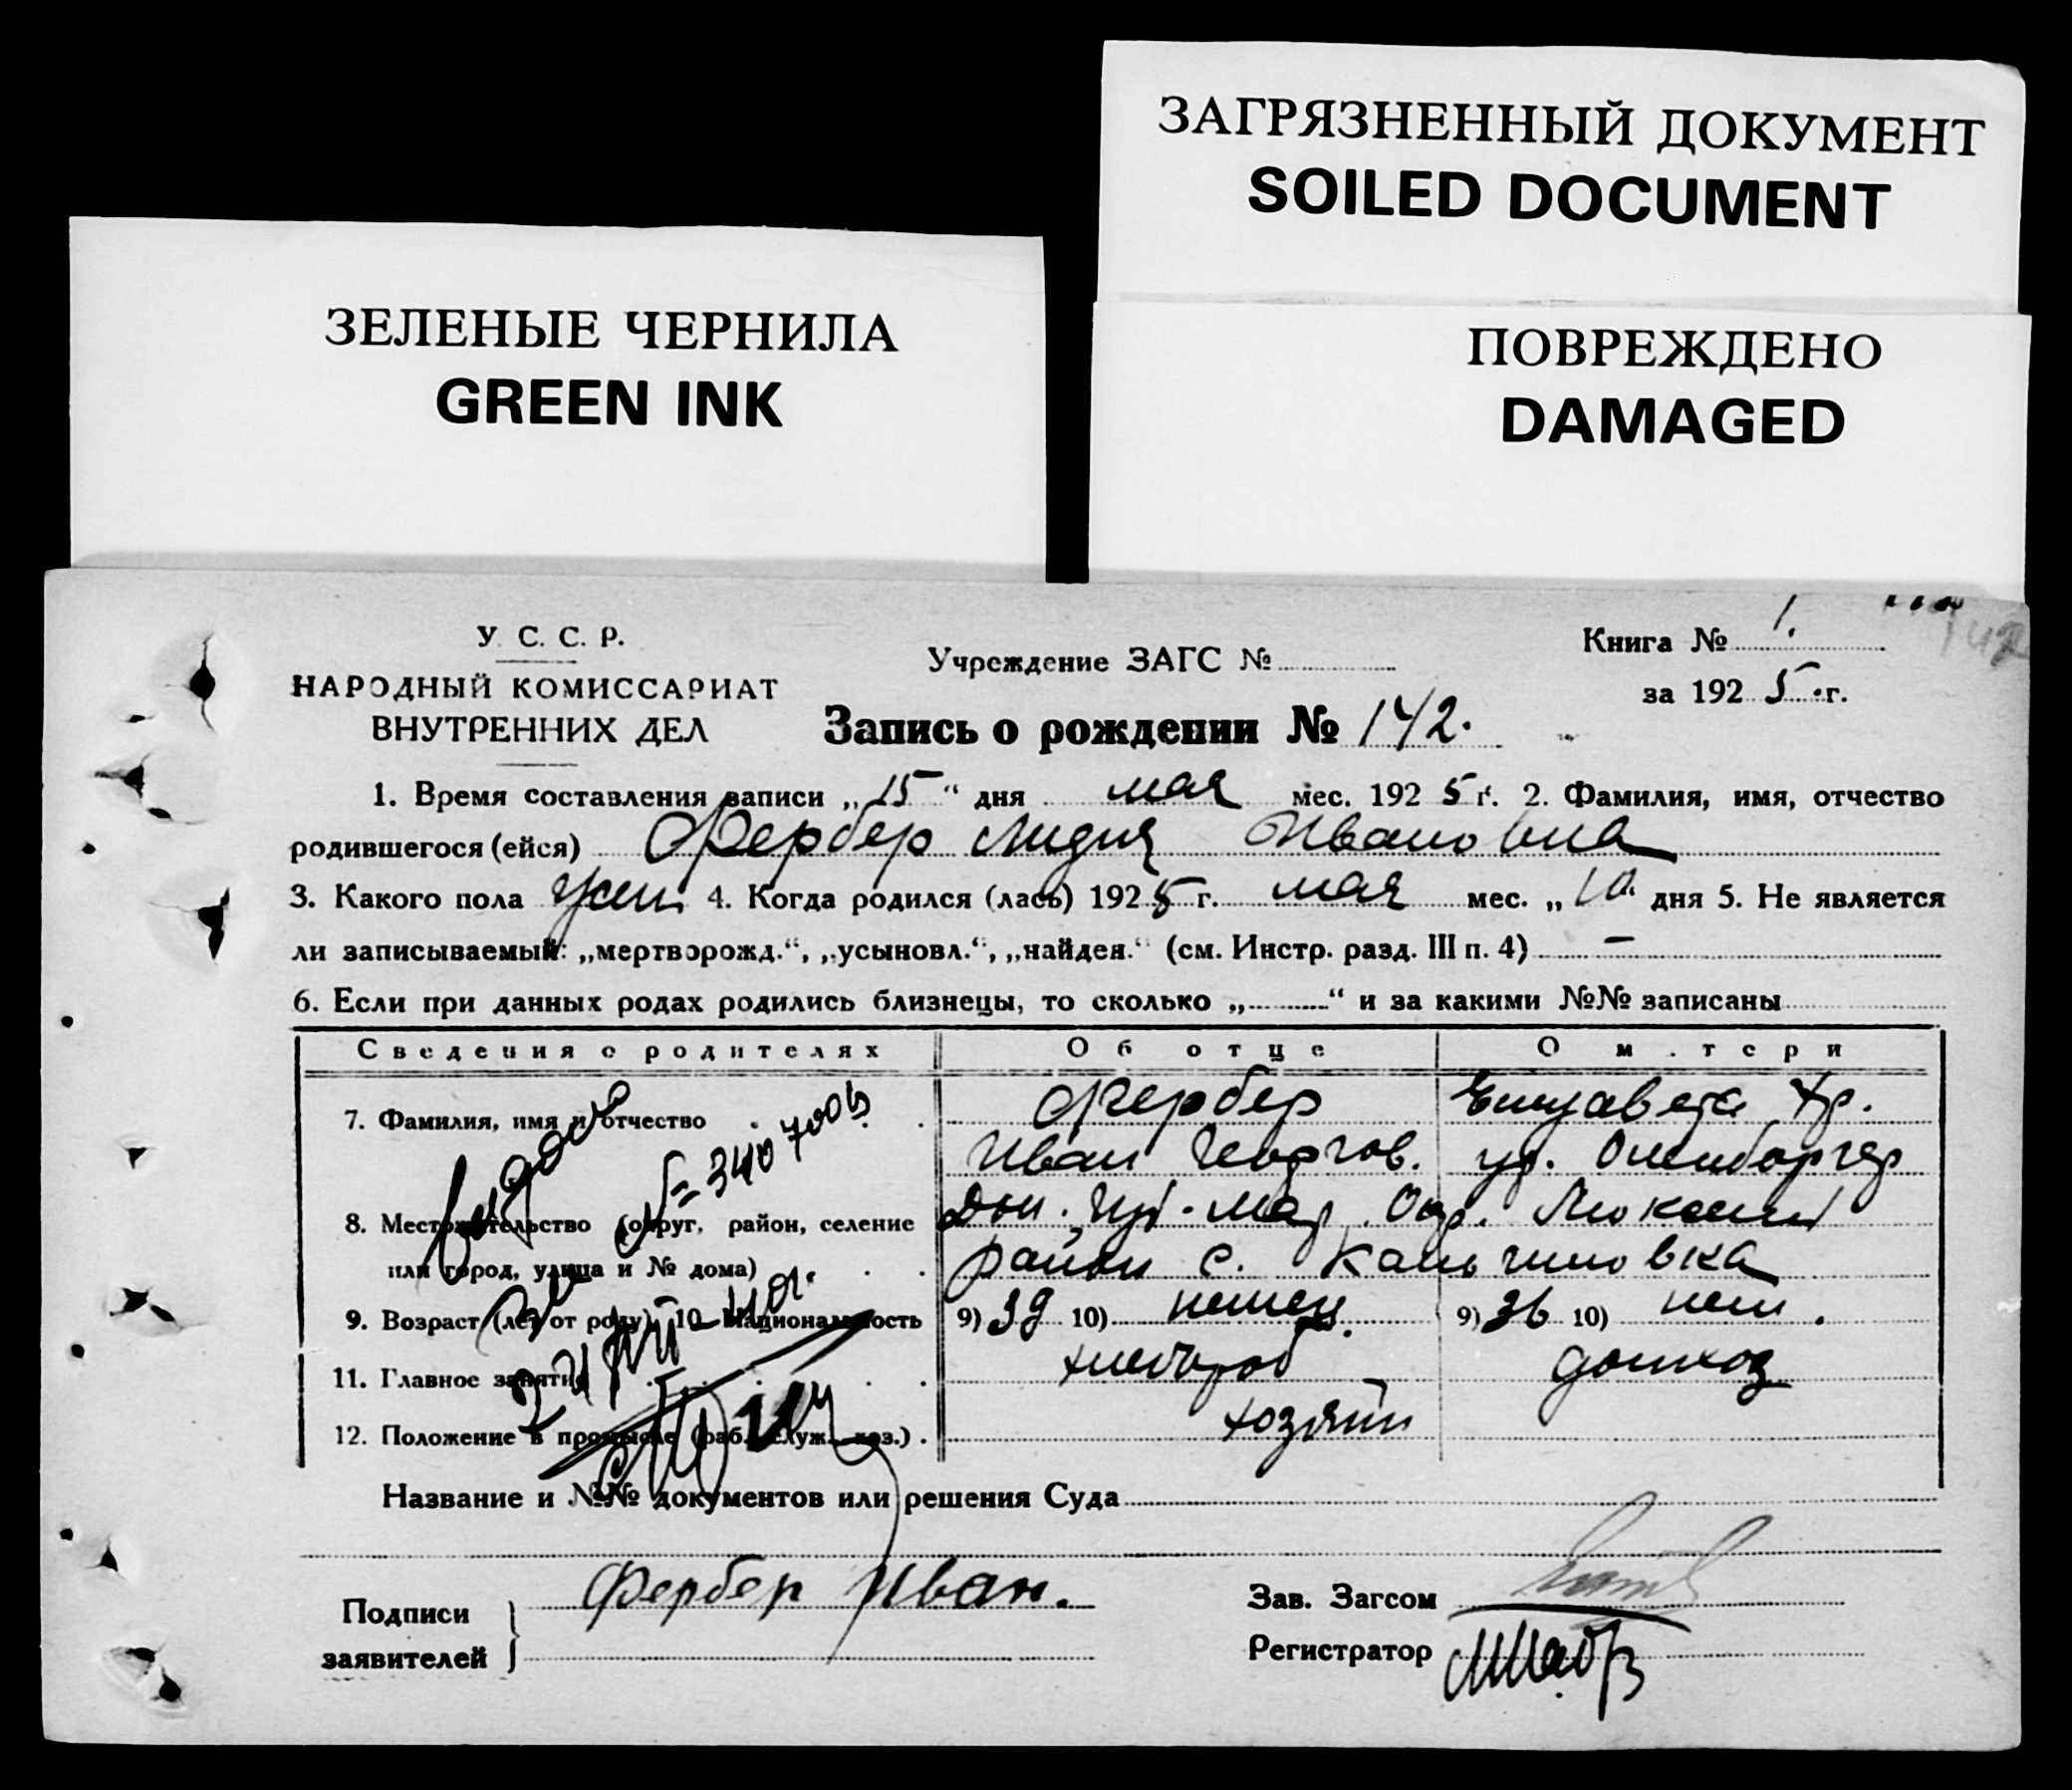 ЗАГРЯЗНЕННЫЙ ДОКУМЕНТ
SOILED DOCUMENT
ЗЕЛЕНЫЕ ЧЕРНИЛА
GREEN INK
ПОВРЕЖДЕНО
DAMAGED
У. С. С. Р.
НАРОДНЫЙ КОМИССАРИАТ
ВНУТРЕННИХ ДЕЛ
Учреждение ЗАГС №
Книга № 1.
за 1925 г.
142
Запись о рождении № 142.
1. Время составления записи „15“ дня мая мес. 1925 г. 2. Фамилия, имя, отчество
родившегося (ейся) Фербер Лидия Ивановна
3. Какого пола жен. 4. Когда родился (лась) 1925 г. мая мес. „10 дня 5. Не является
ли записываемый: „мертворожд.“, „усыновл.“, „найден.“ (см. Инстр. разд. III п. 4) –
6. Если при данных родах родились близнецы, то сколько „ “ и за какими №№ записаны
Сведения о родителях Об отце О м.тери
7. Фамилия, имя и отчество Фербер Елизавета Хр.
Иван Георгов. ур.
8. Местожительство (округ, район, селение Дон. Губ. Мар. Окр.
или город, улица и № дома) район с. Кальчиновка
9. Возраст (лет от роду) 10. Национальность 9) 39 10) немец. 9) 36 10) нем.
11. Главное занятие хлебороб домхоз
12. Положение в промысле (раб., служ., хоз.) хозяин
Название и №№ документов или решения Суда
Подписи заявителей Фербер Иван.
Зав. Загсом
Регистратор